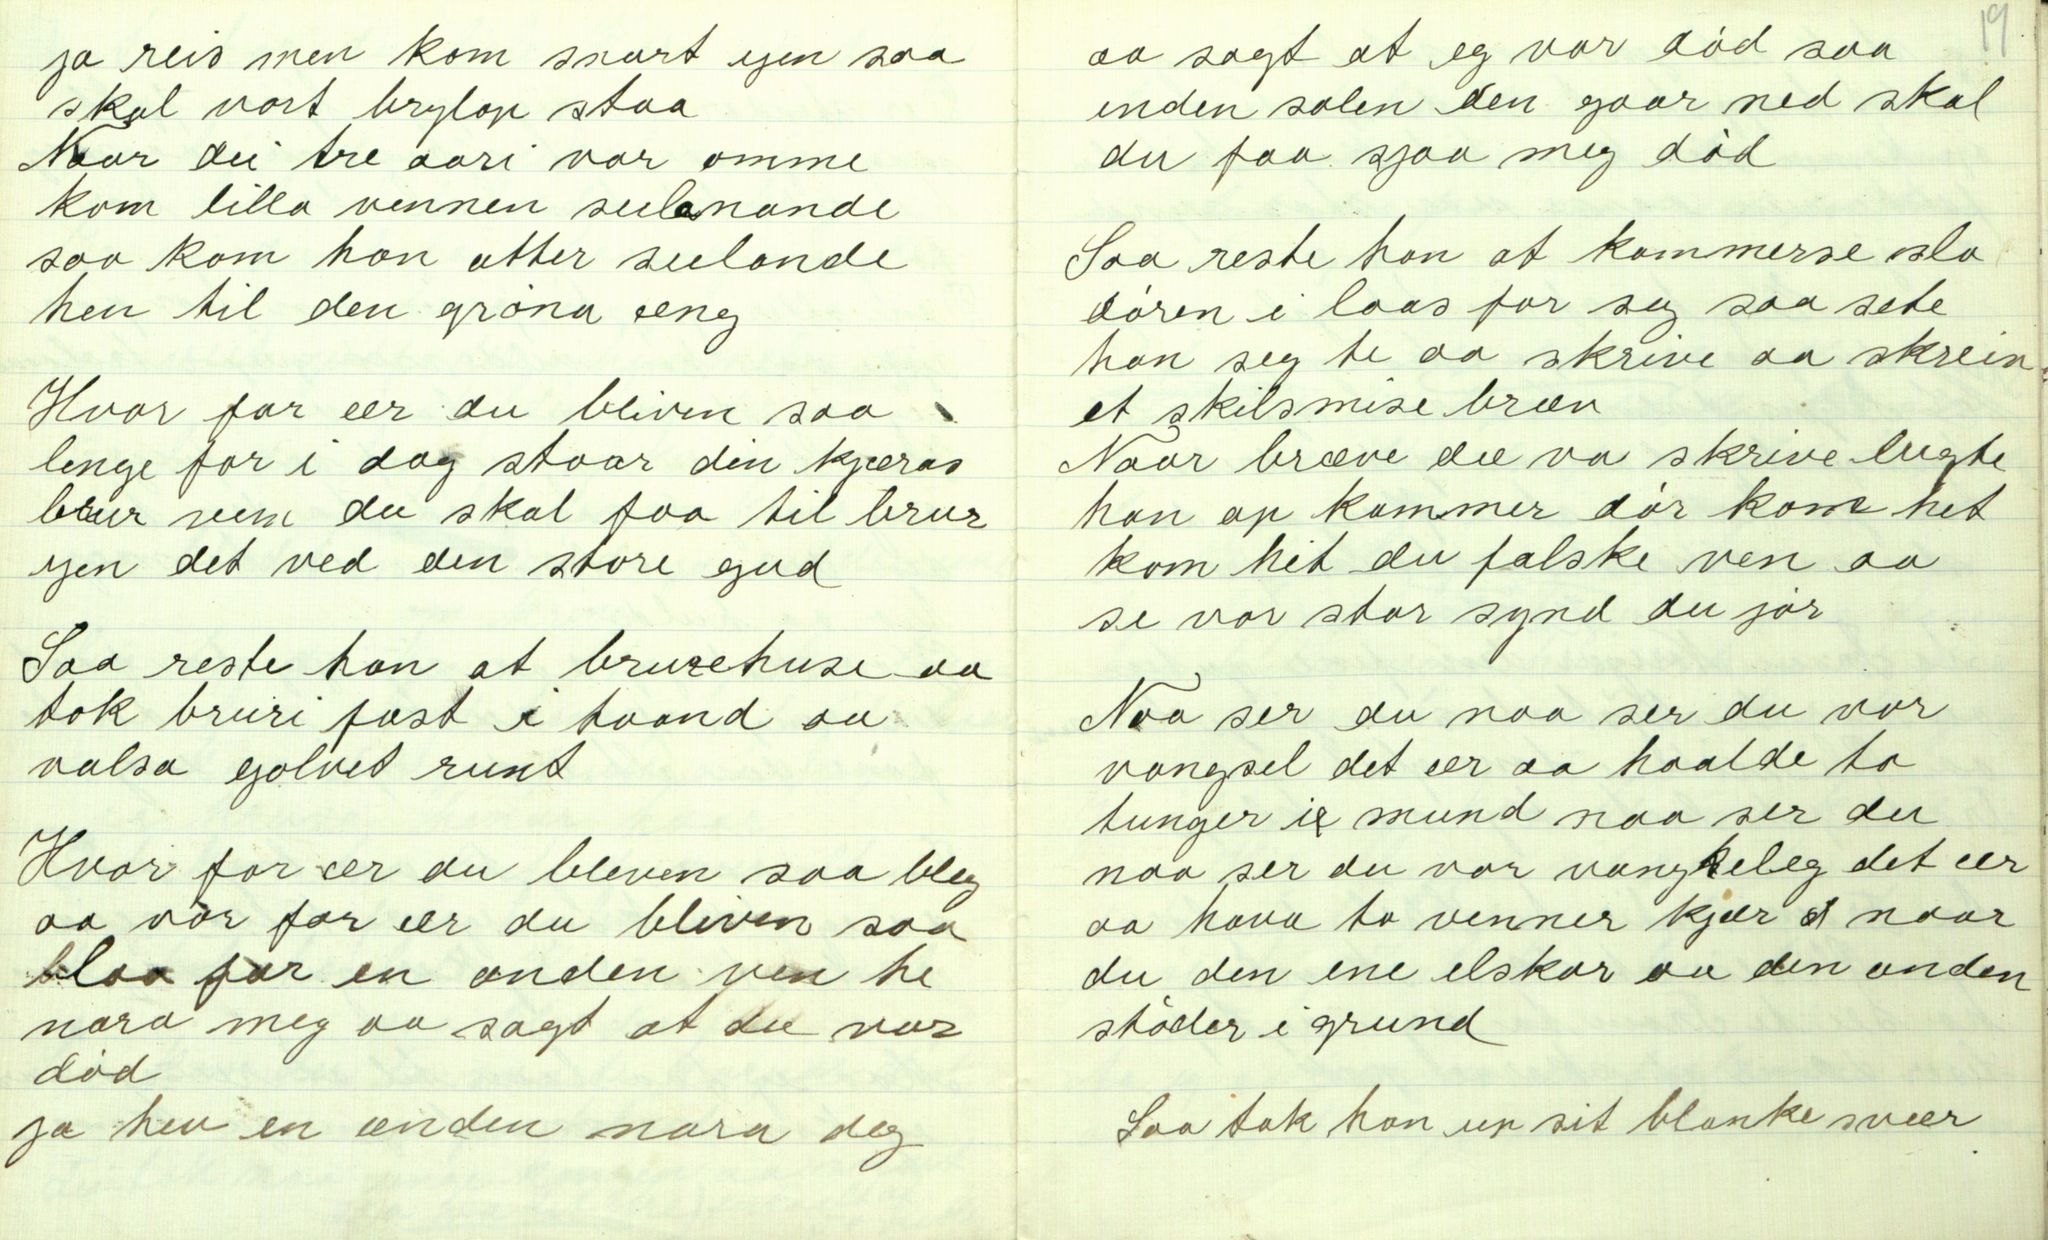 ja reis men kom snart igen saa
skal vort brylop staa
Naar dei tre aari var omme
kom lilla vennen seilanande
saa kom han atter seilande
hen til den gròna æng
Hvor for ær du bliven saa
lenge for i dag staar din kjæras
brur vem du skal faa til brur
igen det ved den store gud
Saa reste han at brurehuse aa
tok bruri fast i haand aa
valsa golvet runt
Hvor for ær du bleven saa bleg
aa vòr for ær du bliven saa
blaa for en anden ven he
nara meg aa sagt at du var
dòd
ja hev en ænden nara deg
19
aa sagt at eg var dòd saa
inden solen den gaar ned skal
du faa sjaa meg dòd
Saa reste han at kammerse sla
dòren i laas for seg saa sete
han seg te aa skrive aa skreiv
et skilsmise bræv
Naar bræve dæ va skrive lugte
han op kammer dòr kom het
kom hit du falske ven aa
se vor stor synd du jòr
Naa ser du naa ser du vor
vangsel det ær aa haalde to
tunger i mund naa ser du
naa ser du vor vangseleg det ær
aa hava to venner kjær naar
du den ene elskar aa den anden
stòder i grund
Saa tok han up sit blanke svær